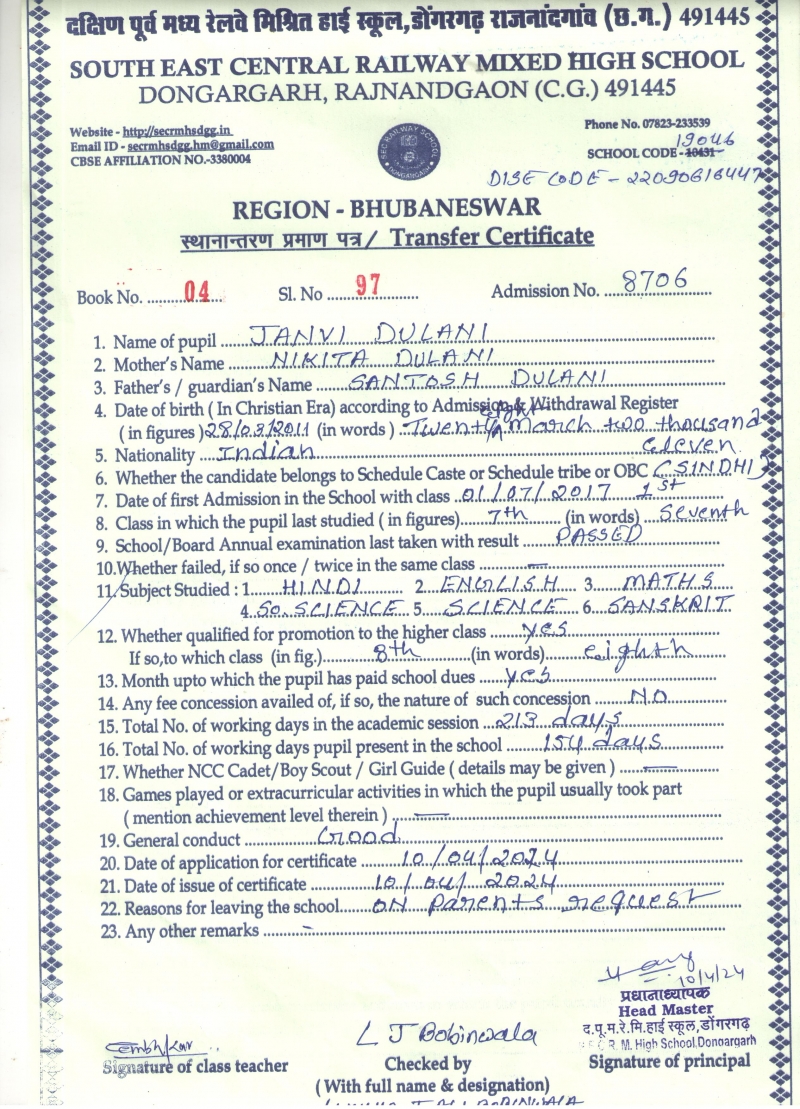 दक्षिण पूर्व मध्य रेलवे मिश्रित हाई स्कूल,डोंगरगढ़ राजनांदगांव (छ.ग.) 491445
SOUTH EAST CENTRAL RAILWAY MIXED HIGH SCHOOL
DONGARGARH, RAJNANDGAON (C.G.) 491445
Website - http://secrmhsdgg.in
Email ID - secrmhsdgg.hm@gmail.com
CBSE AFFILIATION NO.-3380004
SEC RAILWAY SCHOOL DONGARGARH
Phone No. 07823-233539
19046
SCHOOL CODE -10431
DISE CODE - 22090616447
REGION - BHUBANESWAR
स्थानान्तरण प्रमाण पत्र / Transfer Certificate
Book No. 04 Sl. No 97 Admission No. 8706
1. Name of pupil JANVI DULANI
2. Mother's Name NIKITA DULANI
3. Father's / guardian's Name SANTOSH DULANI
4. Date of birth ( In Christian Era) according to Admission & Withdrawal Register
( in figures ) 28/03/2011 (in words ) Twenty eight March two thousand
eleven
5. Nationality Indian
6. Whether the candidate belongs to Schedule Caste or Schedule tribe or OBC (SINDHI)
7. Date of first Admission in the School with class 01/07/2017 1st
8. Class in which the pupil last studied ( in figures) 7th (in words) Seventh
9. School/Board Annual examination last taken with result PASSED
10. Whether failed, if so once / twice in the same class —
11. Subject Studied : 1 HINDI 2 ENGLISH 3 MATHS
4 SO. SCIENCE 5 SCIENCE 6 SANSKRIT
12. Whether qualified for promotion to the higher class yes
If so,to which class (in fig.) 8th (in words) eighth
13. Month upto which the pupil has paid school dues yes
14. Any fee concession availed of, if so, the nature of such concession NO
15. Total No. of working days in the academic session 213 days
16. Total No. of working days pupil present in the school 154 days
17. Whether NCC Cadet/Boy Scout / Girl Guide ( details may be given ) —
18. Games played or extracurricular activities in which the pupil usually took part
( mention achievement level therein ) —
19. General conduct Good
20. Date of application for certificate 10/04/2024
21. Date of issue of certificate 10/04/2024
22. Reasons for leaving the school ON Parents request
23. Any other remarks -
10/4/24
प्रधानाध्यापक
Head Master
द.पू.म.रे.मि.हाई स्कूल,डोंगरगढ़
R. M. High School,Dongargarh
L J Bobinwala
Signature of class teacher
Checked by
Signature of principal
(With full name & designation)